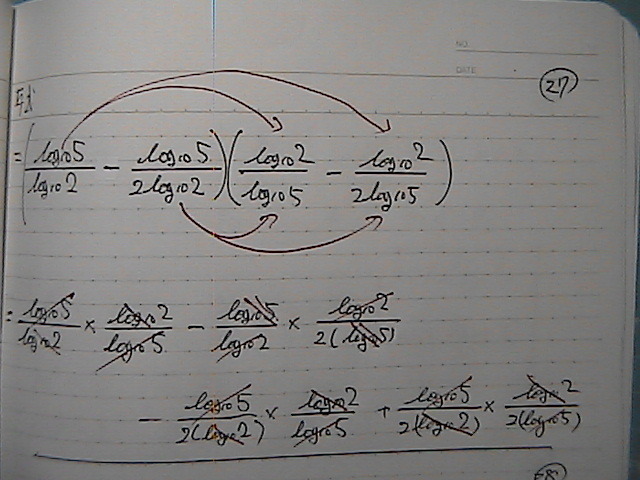 NO.
DATE
27
原式
= (log₁₀5/log₁₀2 − log₁₀5/2log₁₀2)(log₁₀2/log₁₀5 − log₁₀2/2log₁₀5)
= log₁₀5/log₁₀2 × log₁₀2/log₁₀5 − log₁₀5/log₁₀2 × log₁₀2/2(log₁₀5)
− log₁₀5/2(log₁₀2) × log₁₀2/log₁₀5 + log₁₀5/2(log₁₀2) × log₁₀2/2(log₁₀5)